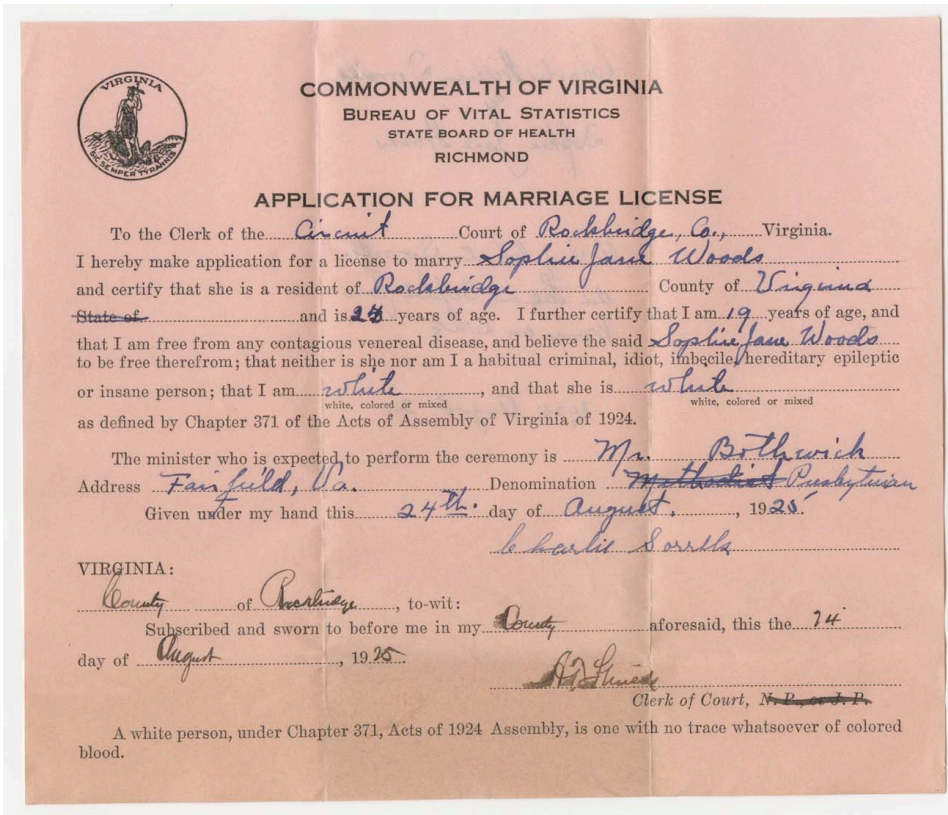 VIRGINIA
SIC SEMPER TYRANNIS
COMMONWEALTH OF VIRGINIA
BUREAU OF VITAL STATISTICS
STATE BOARD OF HEALTH
RICHMOND
APPLICATION FOR MARRIAGE LICENSE
To the Clerk of the Circuit Court of Rockbridge, Co., Virginia.
I hereby make application for a license to marry Sophie Jane Woods
and certify that she is a resident of Rockbridge County of Virginia
State of and is years of age. I further certify that I am 19 years of age, and
that I am free from any contagious venereal disease, and believe the said Sophie Jane Woods
to be free therefrom; that neither is she nor am I a habitual criminal, idiot, imbecile, hereditary epileptic
or insane person; that I am white, and that she is white
white, colored or mixed white, colored or mixed
as defined by Chapter 371 of the Acts of Assembly of Virginia of 1924.
The minister who is expected to perform the ceremony is Mr. Bothwick
Address Fairfield, Va. Denomination Methodist Presbyterian
Given under my hand this 24th. day of August, 1925.
Charlie Sorrells
VIRGINIA:
County of Rockbridge, to-wit:
Subscribed and sworn to before me in my County aforesaid, this the 24
day of August, 1925.
Clerk of Court, N. P., or J. P.
A white person, under Chapter 371, Acts of 1924 Assembly, is one with no trace whatsoever of colored
blood.